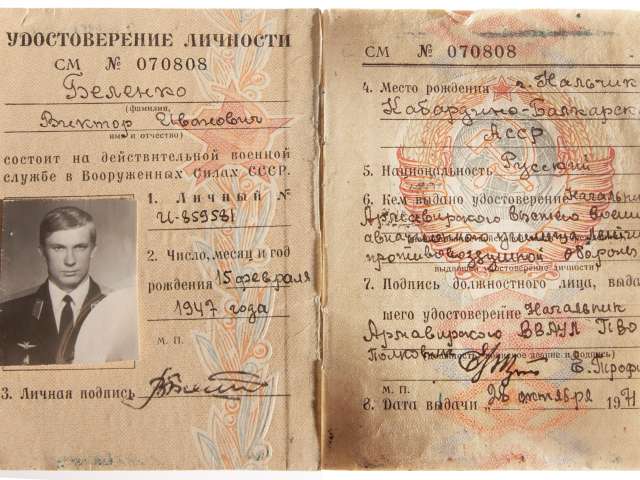 УДОСТОВЕРЕНИЕ ЛИЧНОСТИ
СМ № 070808
Беленко
(фамилия,
Виктор Иванович
имя и отчество)
состоит на действительной военной
службе в Вооруженных Силах СССР.
1. Личный №
И-859581
2. Число, месяц и год
рождения 15 февраля
1947 года
М. П.
3. Личная подпись
СМ № 070808
4. Место рождения г. Нальчик
Кабардино-Балкарск
АССР
5. Национальность Русский
6. Кем выдано удостоверение Начальник
Армавирского высшего военн
авиационного училища летчик
противовоздушной обороны
выдавшей удостоверение личности)
7. Подпись должностного лица, выда
шего удостоверение Начальник
Армавирского ВВАУЛ ПВО
Полковник (должность, воинское звание и подпись)
Е. Трофи
М. П.
8. Дата выдачи „28 октября 1971